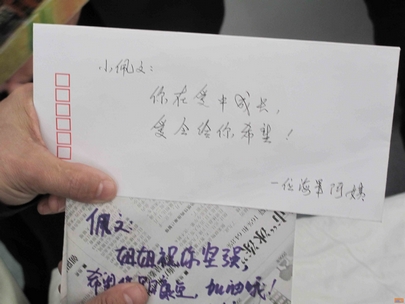 小佩文：
你在爱中成长，
爱会给你希望！
一位海军阿姨
佩文：
姐姐祝你坚强，
加油哦！